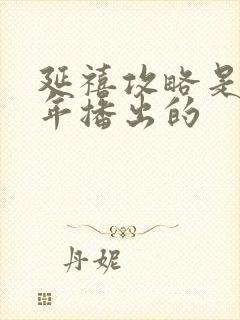 延禧攻略是
年播出的
丹妮